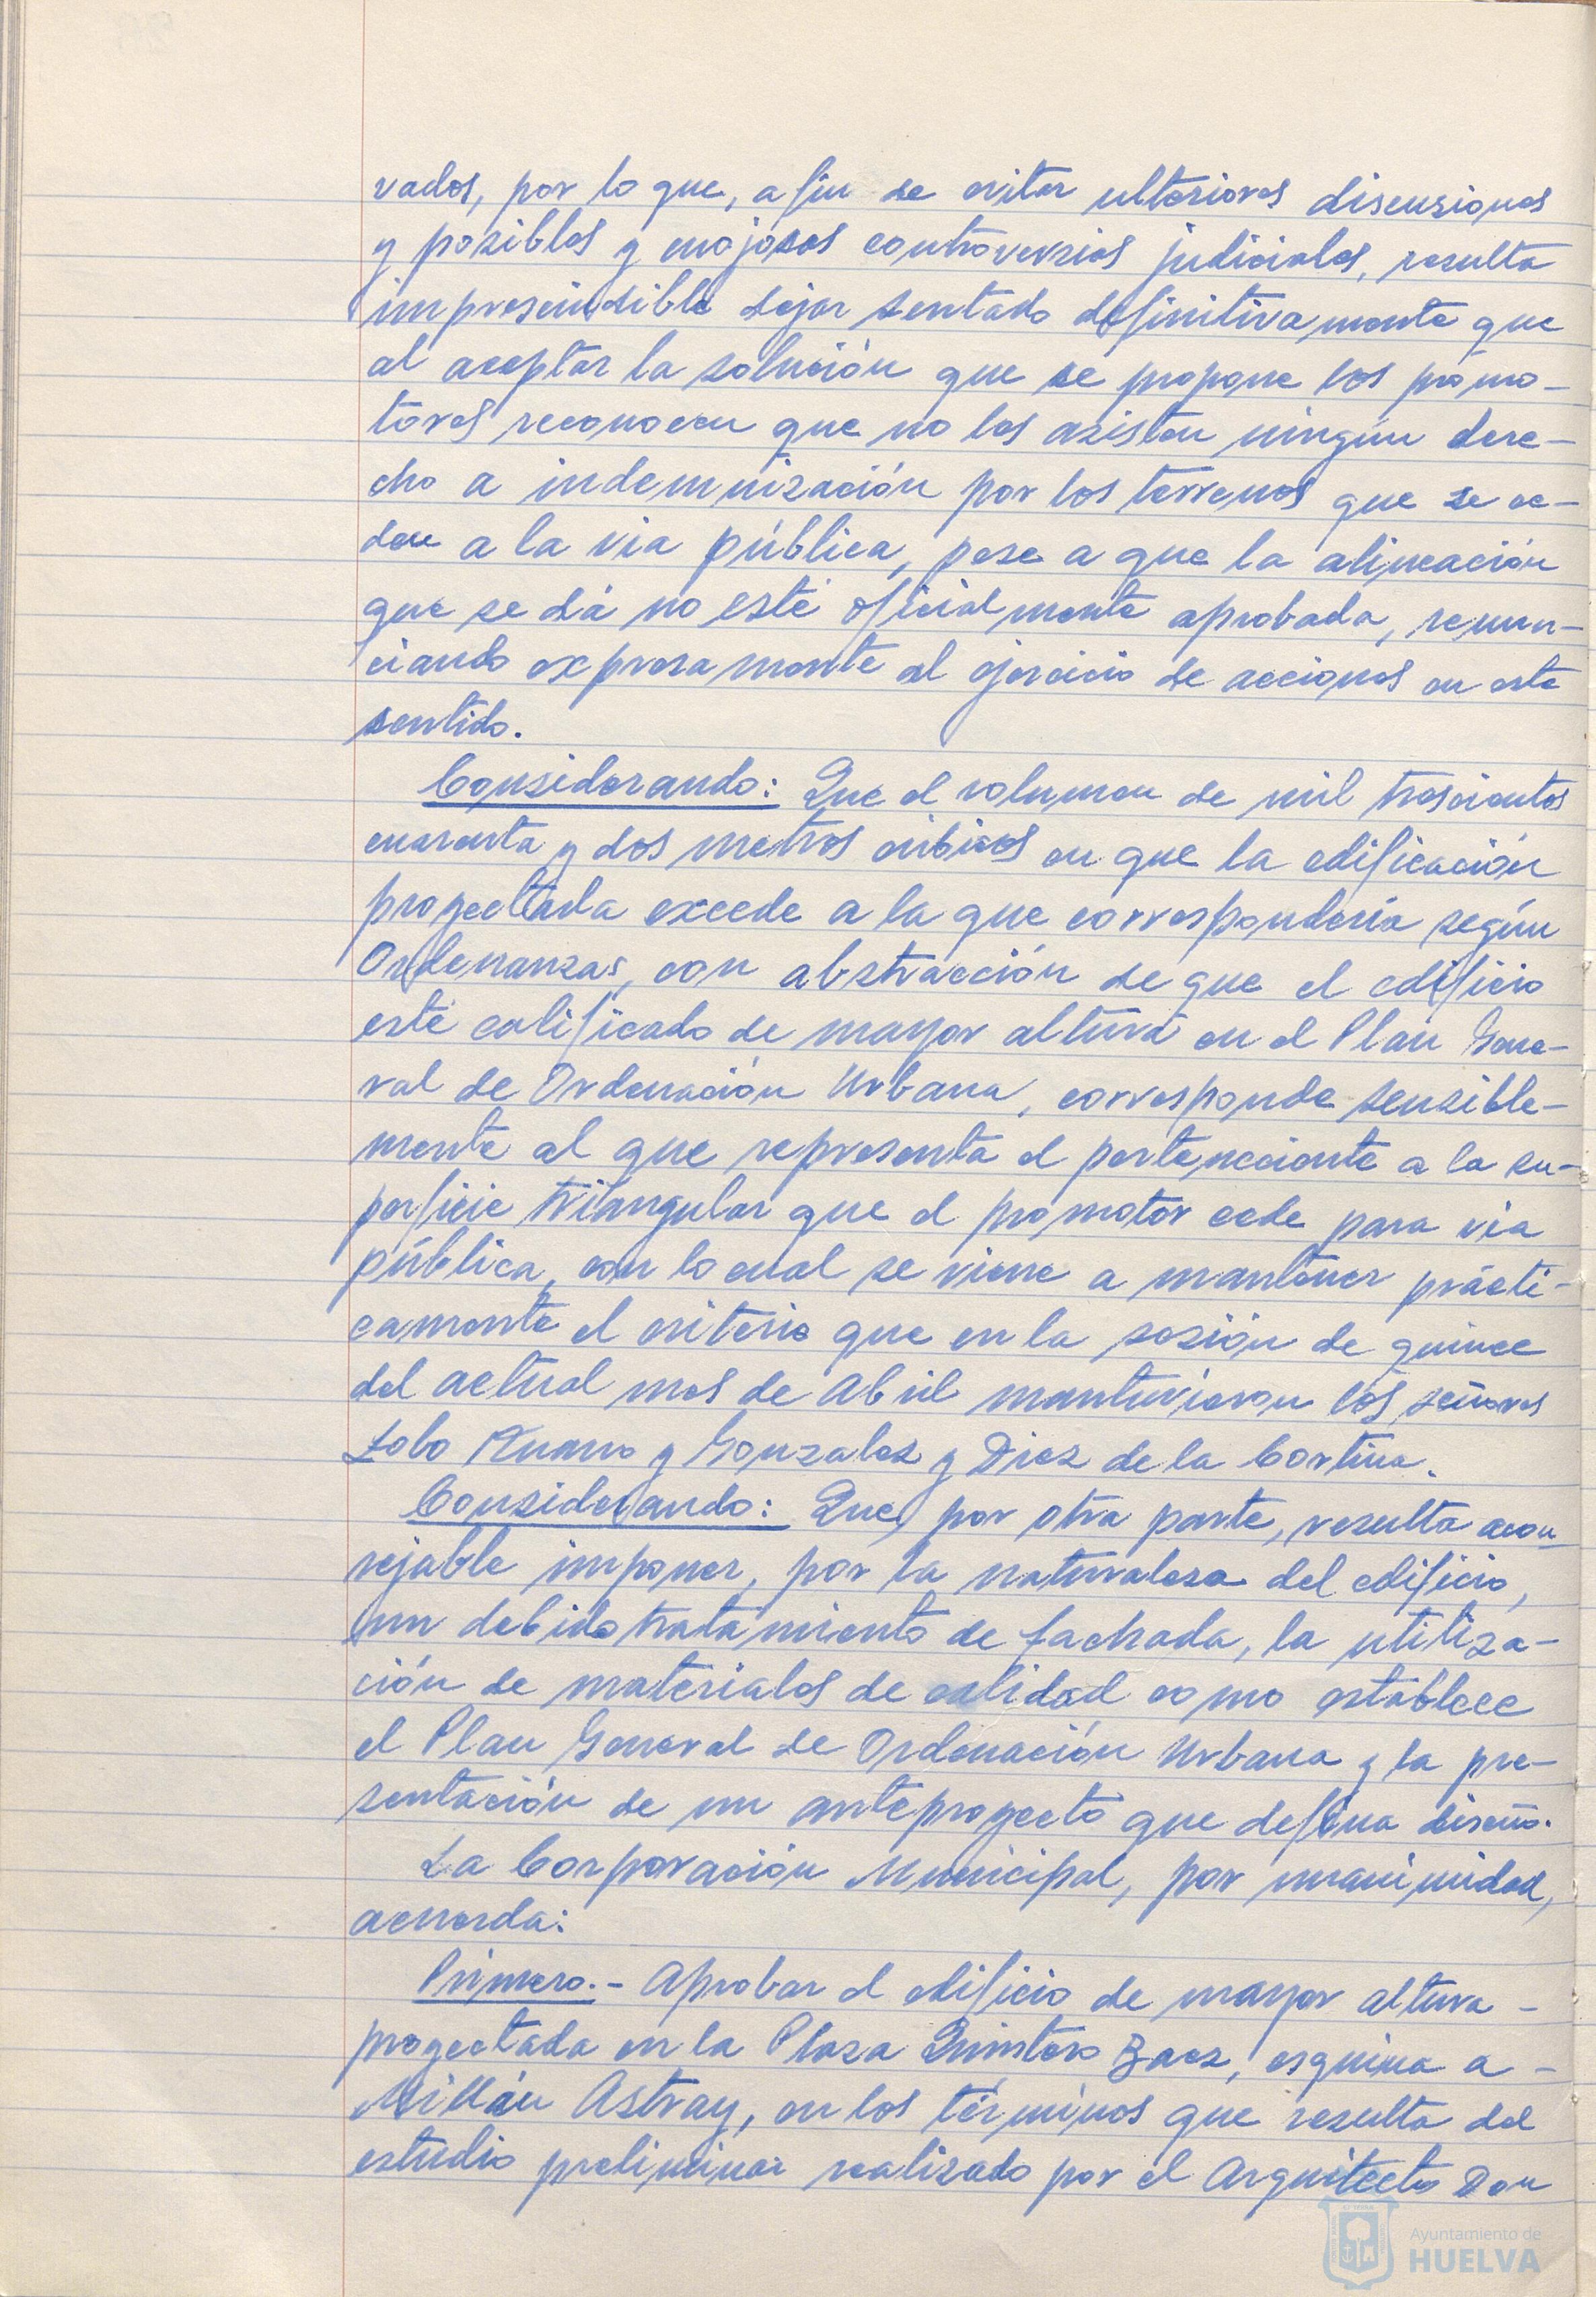 vados, por lo que, a fin de evitar ulteriores discusiones
y posibles y enojosas controversias judiciales, resulta
imprescindible dejar sentado definitivamente que
al aceptar la solución que se propone los promo-
tores reconocen que no les asisten ningún dere-
cho a indemnización por los terrenos que se ce-
den a la via pública, pese a que la alineación
que se dá no esté oficialmente aprobada, renun-
ciando expresamente al ejercicio de acciones en este
sentido.
Considerando: Que el volumen de mil trescientos
cuarenta y dos metros cúbicos en que la edificación
proyectada excede a la que correspondería según
Ordenanzas, con abstracción de que el edificio
esté calificado de mayor altura en el Plan Gene-
ral de Ordenación Urbana, corresponde sensible-
mente al que representa el perteneciente a la su-
perficie triangular que el promotor cede para via
pública, con lo cual se viene a mantener prácti-
camente el criterio que en la sesión de quince
del actual mes de Abril mantuvieron los señores
Lobo Ruano y Gonzalez y Diez de la Cortina.
Considerando: Que, por otra parte, resulta acon
sejable imponer, por la naturaleza del edificio,
un debido tratamiento de fachada, la utiliza-
ción de materiales de calidad como establece
el Plan General de Ordenación Urbana y la pre-
sentación de un anteproyecto que defina diseño.
La Corporación Municipal, por unanimidad,
acuerda:
Primero.- Aprobar el edificio de mayor altura -
proyectada en la Plaza Quintero Baez, esquina a -
Millán Astray, en los términos que resulta del
estudio preliminar realizado por el Arquitecto Don
Ayuntamiento de
HUELVA